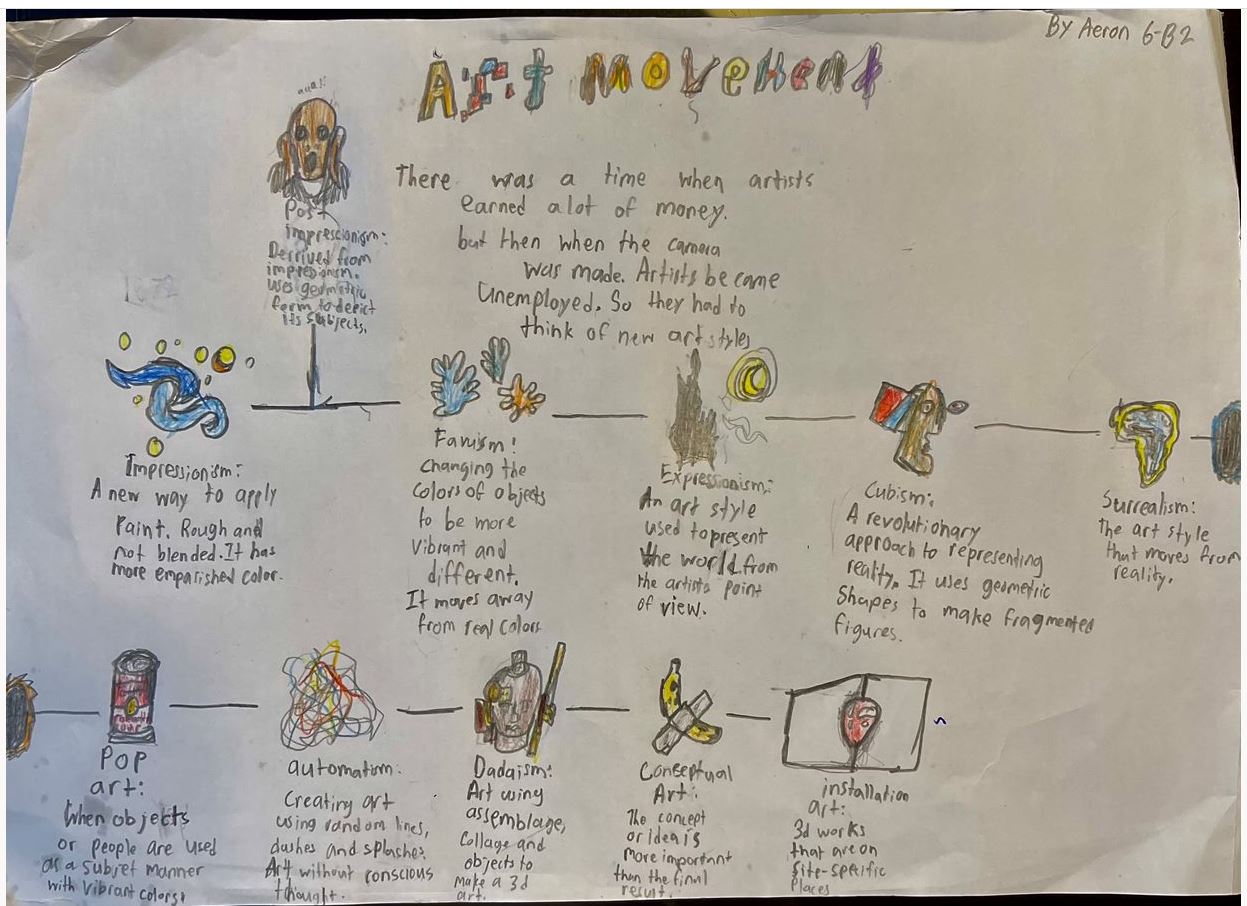 By Aeron 6-B2
Art Movement
There was a time when artists
earned a lot of money.
but then when the camera
was made. Artists be came
Unemployed. So they had to
think of new art styles
Post
impresscionism:
Derrived from
impressionism.
uses geometric
form to depict
its subjects.
Impressionism:
A new way to apply
Paint. Rough and
not blended. It has
more emparished color.
Favuism:
Changing the
Colors of objects
to be more
Vibrant and
different.
It moves away
from real colors
Expressionism:
An art style
used to present
the world from
the artists point
of view.
Cubism:
A revolutionary
approach to representing
reality. It uses geometric
Shapes to make fragmented
figures.
Surrealism:
The art style
that moves from
reality.
Pop
art:
When objects
or people are used
as a subjet manner
with vibrant colors!
automatism:
Creating art
using random lines,
dashes and splashes.
Art without conscious
thought.
Dadaism:
Art using
assemblage,
Collage and
objects to
make a 3d
art.
Conseptual
Art:
The concept
or idea is
more important
than the final
result.
installation
art:
3d works
that are on
Site-specific
Places